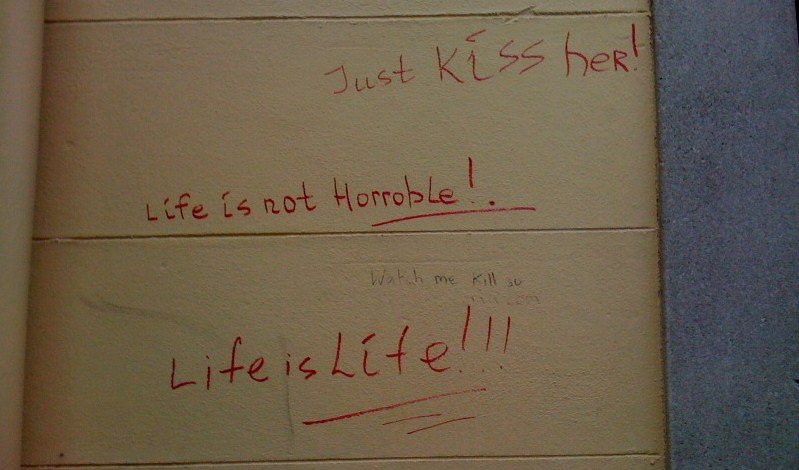 Just Kiss her!
Life is not Horroble!.
Watch me kill
Life is Life!!!